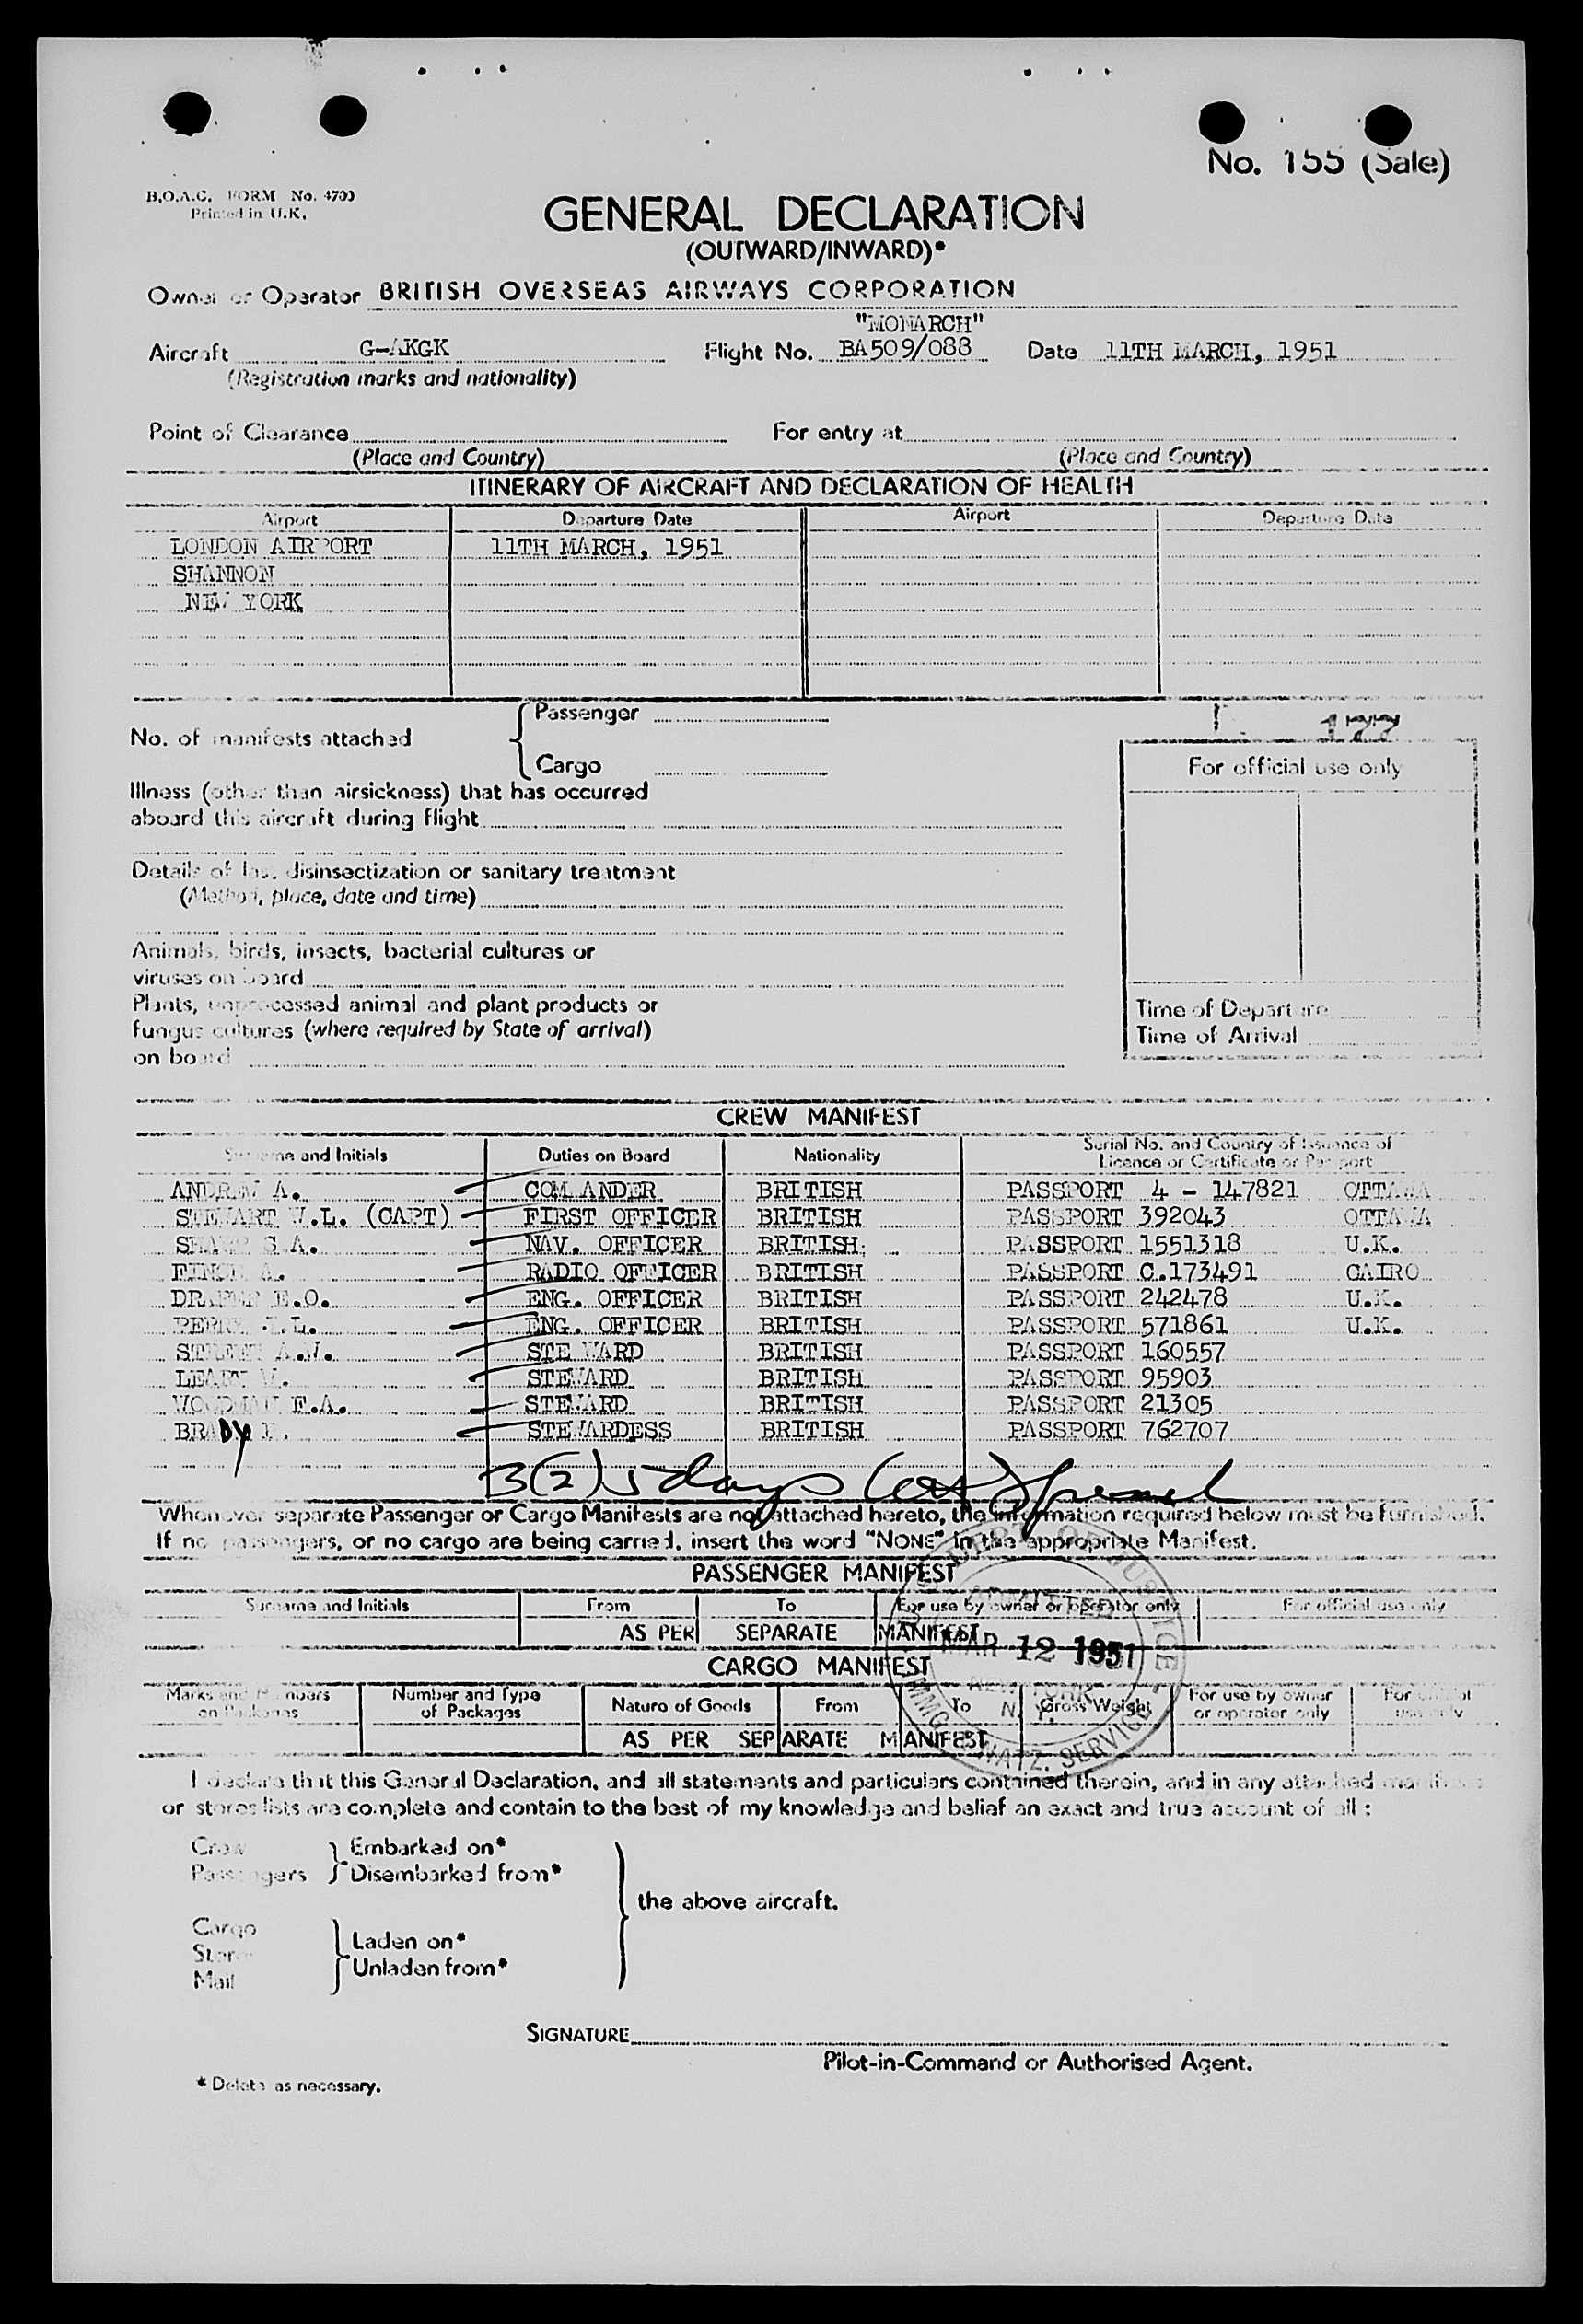 No. 155 (Sale)
B.O.A.C. FORM No. 4700
Printed in U.K.
GENERAL DECLARATION
(OUTWARD/INWARD)*
Owner or Operator BRITISH OVERSEAS AIRWAYS CORPORATION
"MONARCH"
Aircraft G-AKGK Flight No. BA509/088 Date 11TH MARCH, 1951
(Registration marks and nationality)
Point of Clearance For entry at
(Place and Country) (Place and Country)
ITINERARY OF AIRCRAFT AND DECLARATION OF HEALTH
Airport Departure Date Airport Departure Date
LONDON AIRPORT 11TH MARCH, 1951
SHANNON
NEW YORK
Passenger
No. of manifests attached
Cargo
177
For official use only
Illness (other than airsickness) that has occurred
aboard this aircraft during flight
Details of last disinsectization or sanitary treatment
(Method, place, date and time)
Animals, birds, insects, bacterial cultures or
viruses on board
Plants, unprocessed animal and plant products or
fungus cultures (where required by State of arrival)
on board
Time of Departure
Time of Arrival
CREW MANIFEST
Surname and Initials Duties on Board Nationality Serial No. and Country of Issuance of
Licence or Certificate or Passport
ANDREW A. COMMANDER BRITISH PASSPORT 4 - 147821 OTTAWA
STEWART W.L. (CAPT) FIRST OFFICER BRITISH PASSPORT 392043 OTTAWA
S.A. NAV. OFFICER BRITISH PASSPORT 1551318 U.K.
FINCH A. RADIO OFFICER BRITISH PASSPORT C.173491 CAIRO
DRAPER E.O. ENG. OFFICER BRITISH PASSPORT 242478 U.K.
PERRY L. ENG. OFFICER BRITISH PASSPORT 571861 U.K.
STREET A.W. STEWARD BRITISH PASSPORT 160557
STEWARD BRITISH PASSPORT 95903
F.A. STEWARD BRITISH PASSPORT 21305
BRADY STEWARDESS BRITISH PASSPORT 762707
3(2) 5 days
Whenever separate Passenger or Cargo Manifests are not attached hereto, the information required below must be furnished.
If no passengers, or no cargo are being carried, insert the word "NONE" in the appropriate Manifest.
PASSENGER MANIFEST
Surname and Initials From To For use by owner or operator only For official use only
AS PER SEPARATE MANIFEST
U.S. DEPT. OF JUSTICE
ADMITTED
MAR 12 1951
NEW YORK
N.Y.
IMMIG. & NATZ. SERVICE
CARGO MANIFEST
Marks and Numbers on Packages Number and Type of Packages Nature of Goods From To Gross Weight For use by owner or operator only For official use only
AS PER SEPARATE MANIFEST
I declare that this General Declaration, and all statements and particulars contained therein, and in any attached manifests
or stores lists are complete and contain to the best of my knowledge and belief an exact and true account of all :
Crew Embarked on*
Passengers Disembarked from*
the above aircraft.
Cargo
Stores Laden on*
Mail Unladen from*
SIGNATURE
Pilot-in-Command or Authorised Agent.
* Delete as necessary.